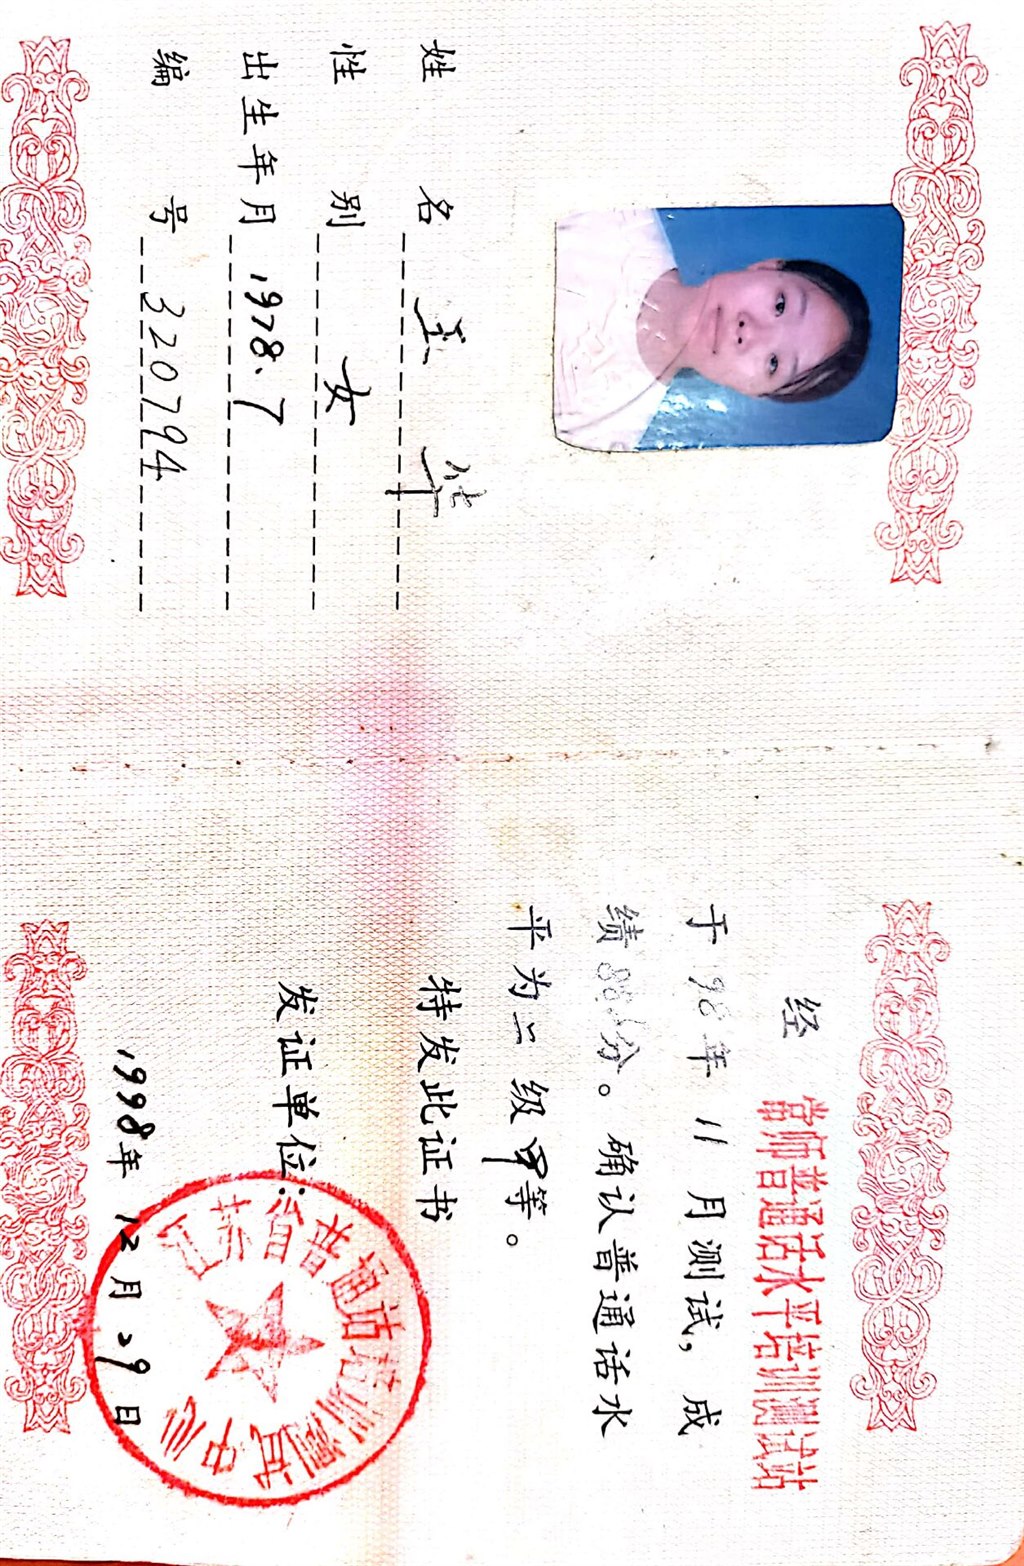 姓 名 王 华
性 别 女
出生年月 1978.7
编 号 320794
经 常师普通话水平培训测试站
于 98 年 11 月测试，成
绩 分。确认普通话水
平为 二 级 甲 等。
特发此证书
发证单位：
江苏省普通话培训测试中心
1998 年 12 月 29 日